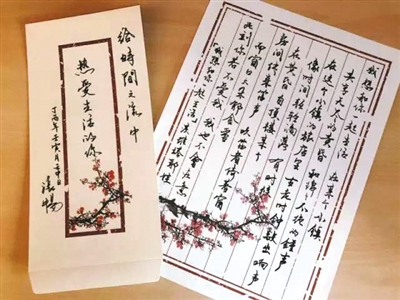 给時間之流中
热爱生活的你
我想和你一起生活 在某个小镇
共享无尽的黄昏 和绵绵不绝的钟声
在这个小镇的旅店里 古老时钟敲出 响声
像时间轻轻滴落 有时候
在黄昏 自顶楼某个
房间传来笛声 吹笛者倚着窗牖
而窗口大朵郁金香
此刻你若不爱我 我也不会在意